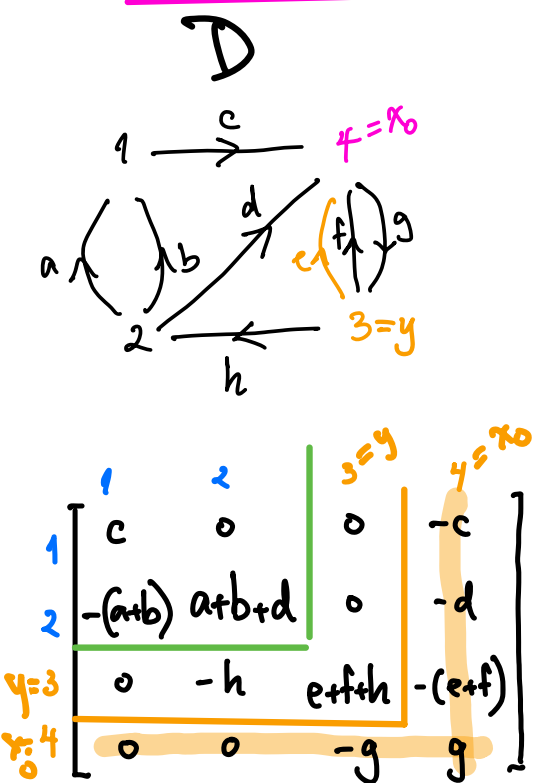 D
c
1
4 = x₀
d
a
b
e
f
g
2
3 = y
h
1 2 3=y 4=x₀
1 c 0 0 -c
2 -(a+b) a+b+d 0 -d
y=3 0 -h e+f+h -(e+f)
x₀=4 0 0 -g g